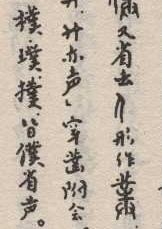 又省去亻形作菐
廾亦声，穿凿附会
樸、璞、撲皆僕省声。